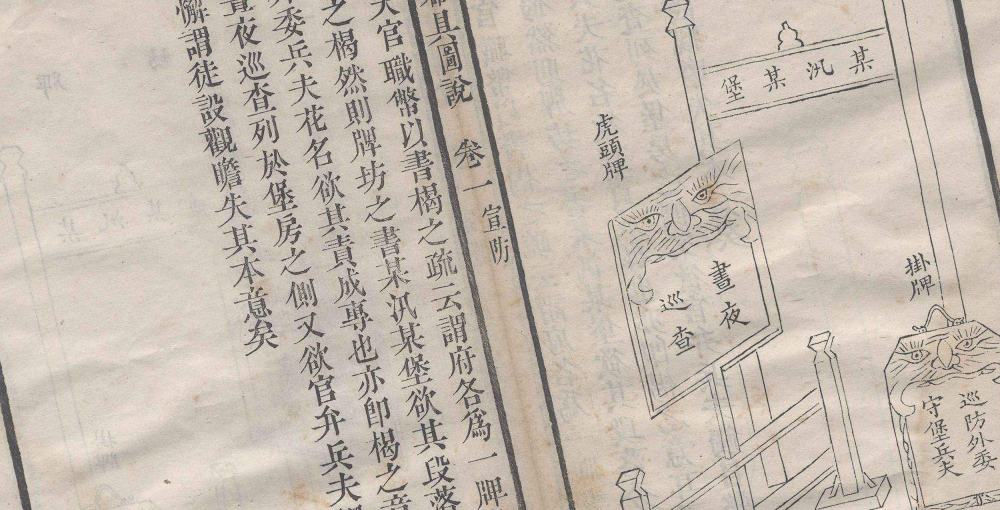 某汛某堡
虎頭牌
晝夜
巡查
掛牌
巡防外委
守堡兵夫
具圖說 卷一 宣防
天官職幣以書楬之疏云謂府各爲一牌
之楬然則牌坊之書某汛某堡欲其段落
外委兵夫花名欲其責成專也亦卽楬之意
晝夜巡查列於堡房之側又欲官弁兵夫
懈謂徒設觀瞻失其本意矣